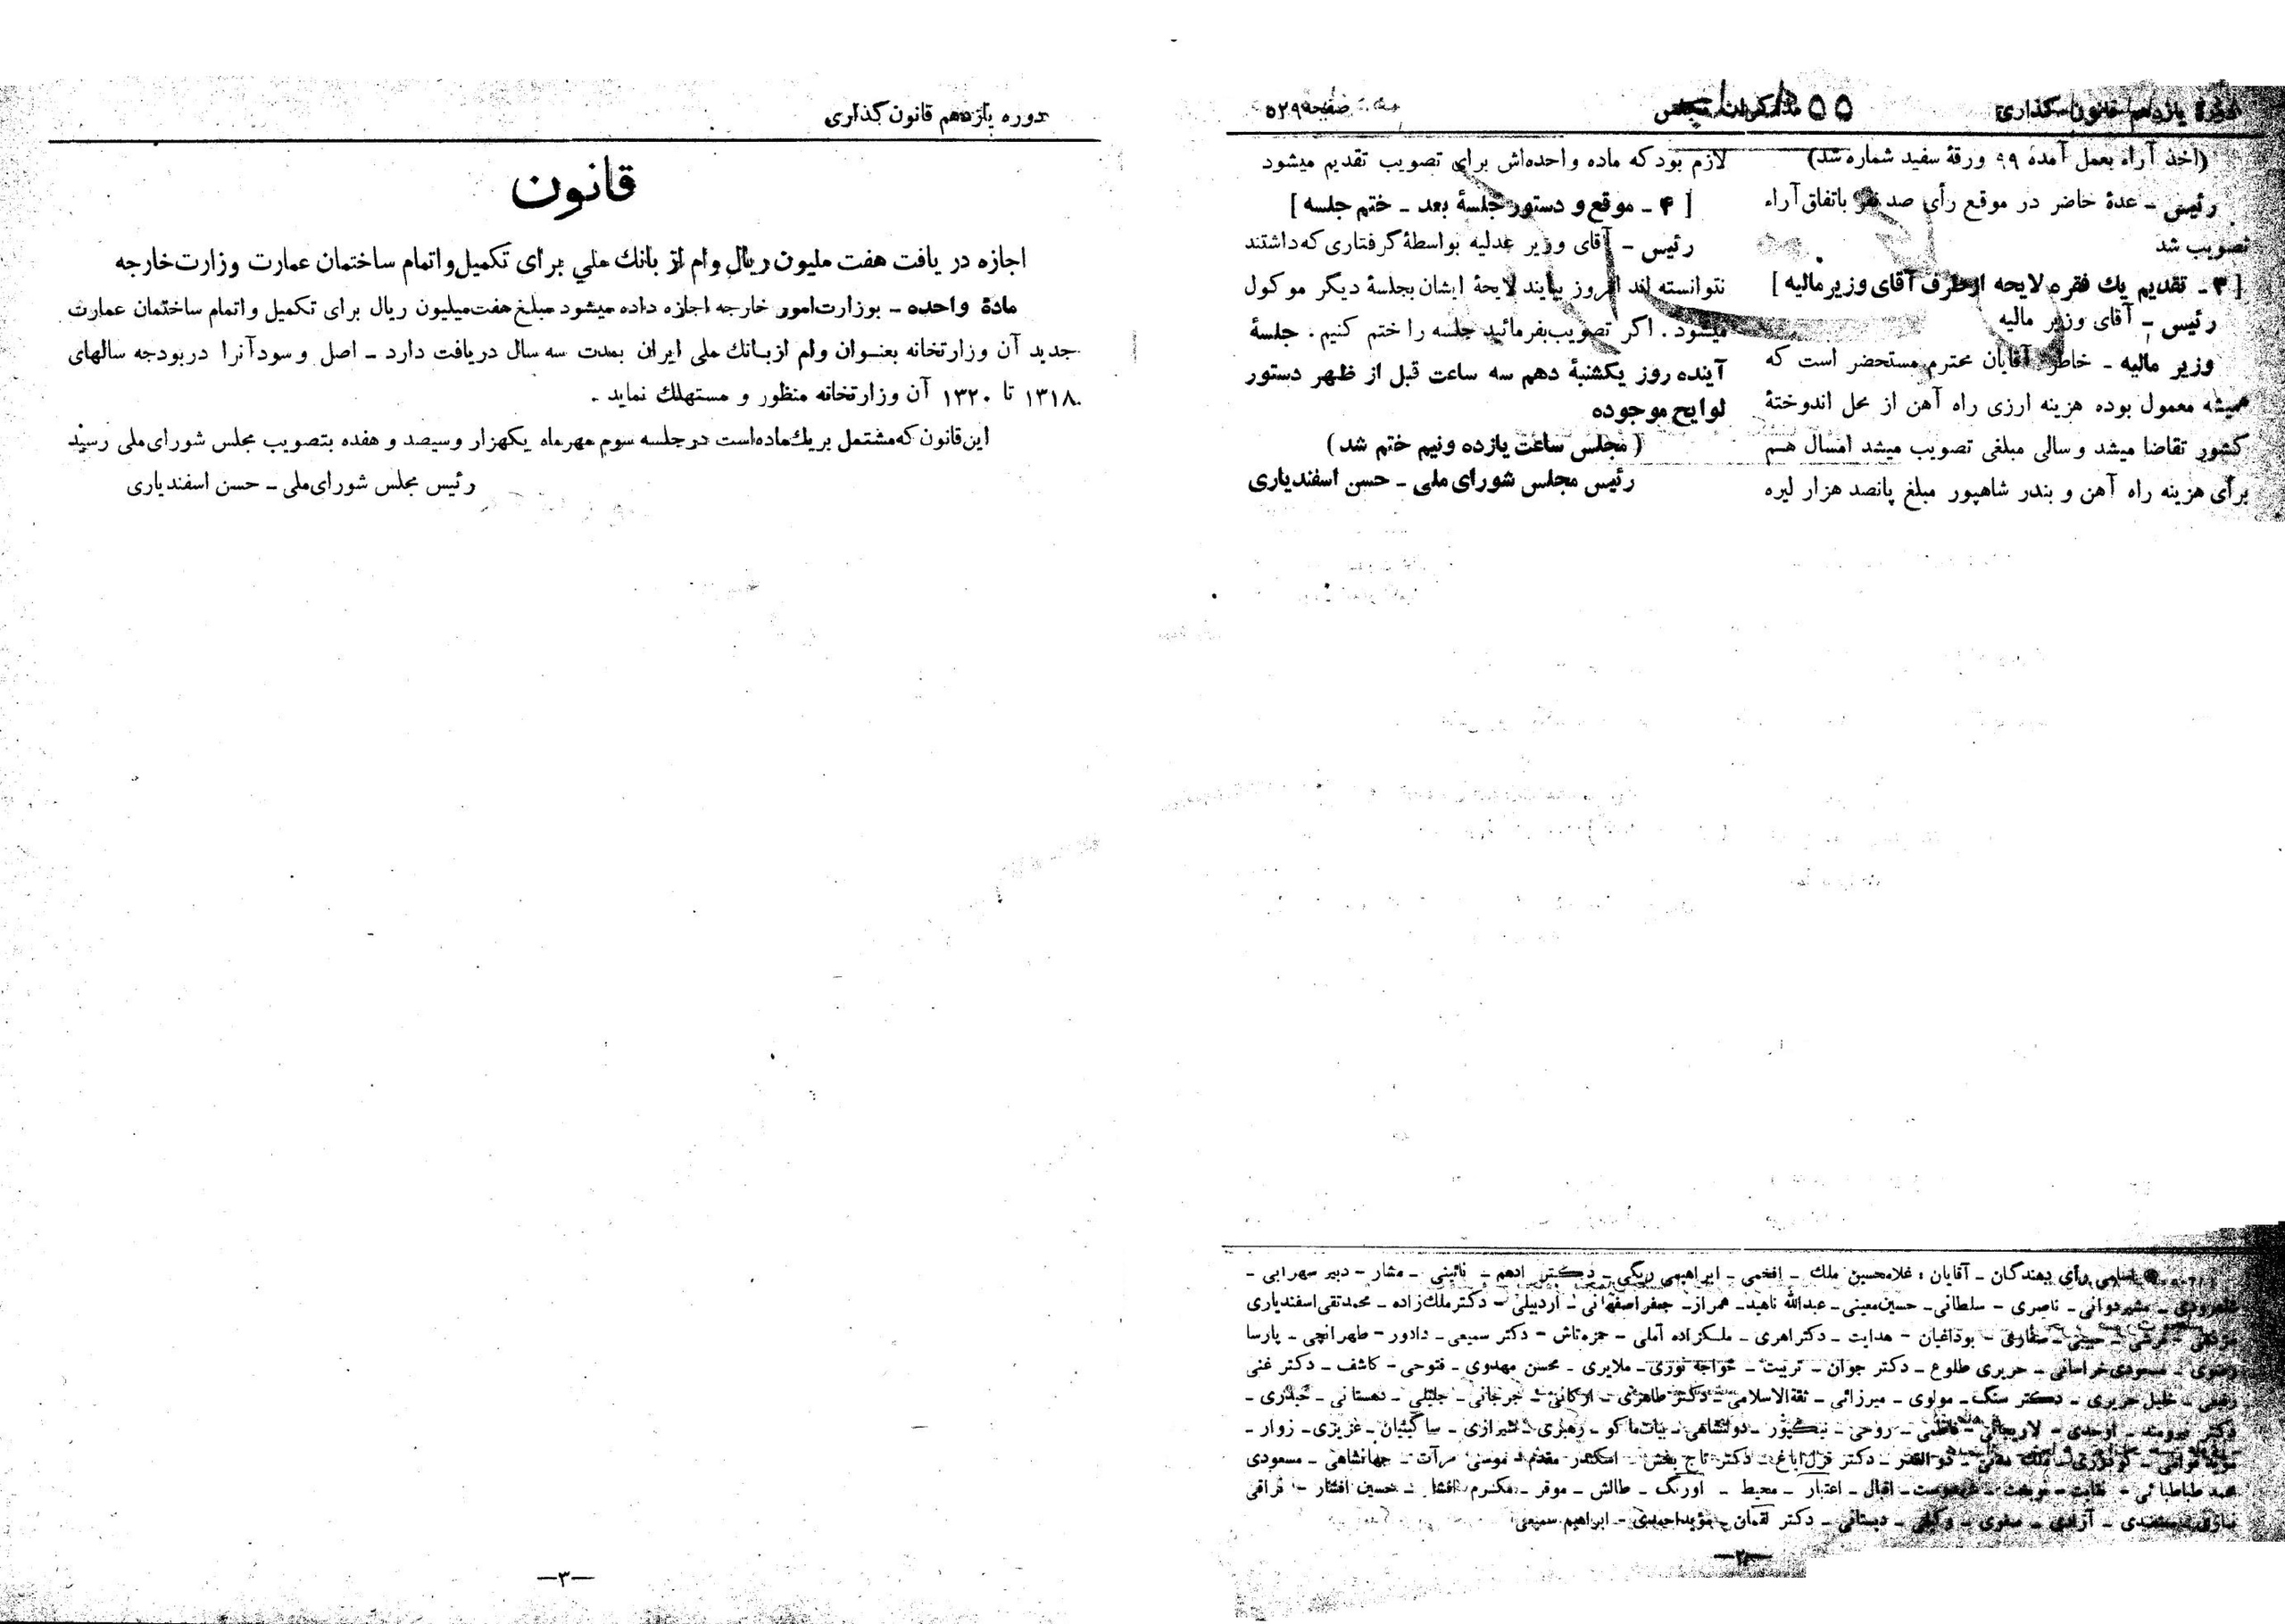 دوره یازدهم قانون‌گذاری
مذاکرات مجلس
صفحه ۵۲۹
(اخذ آراء بعمل آمده ۹۹ ورقهٔ سفید شماره شد)
رئیس ـ عدهٔ حاضر در موقع رأی صد نفر باتفاق آراء
تصویب شد
[۳ـ تقدیم یك فقره لایحه ازطرف آقای وزیر مالیه]
رئیس ـ آقای وزیر مالیه
وزیر مالیه ـ خاطر آقایان محترم مستحضر است که
همیشه معمول بوده هزینه ارزی راه آهن از محل اندوختهٔ
کشور تقاضا میشد و سالی مبلغی تصویب میشد امسال هم
برای هزینه راه آهن و بندر شاهپور مبلغ پانصد هزار لیره
لازم بود که ماده واحده‌اش برای تصویب تقدیم میشود
[۴ ـ موقع و دستور جلسهٔ بعد ـ ختم جلسه]
رئیس ـ آقای وزیر عدلیه بواسطهٔ گرفتاری که داشتند
نتوانسته اند امروز بیایند لایحهٔ ایشان بجلسهٔ دیگر موکول
میشود. اگر تصویب بفرمائید جلسه را ختم کنیم. جلسهٔ
آینده روز یکشنبهٔ دهم سه ساعت قبل از ظهر دستور
لوایح موجوده
(مجلس ساعت یازده ونیم ختم شد)
رئیس مجلس شورای ملی ـ حسن اسفندیاری
اسامی رأی دهندگان ـ آقایان: غلامحسین ملك ـ افخمی ـ ابراهیمی ریگی ـ دکتر ادهم ـ نائینی ـ مشار ـ دبیر سهرابی ـ
ـ مشیردوانی ـ ناصری ـ سلطانی ـ حسین معینی ـ عبدالله ناهید ـ همراز ـ جعفر اصفهانی ـ اردبیلی ـ دکتر ملك‌زاده ـ محمدتقی اسفندیاری
ـ حبیبی ـ صفاری ـ بوداغیان ـ هدایت ـ دکتر اهری ـ ملکزاده آملی ـ حمزه‌تاش ـ دکتر سمیعی ـ دادور ـ طهرانچی ـ پارسا
ـ مسعودی خراسانی ـ حریری طلوع ـ دکتر جوان ـ تربیت ـ خواجه نوری ـ ملایری ـ محسن مهدوی ـ فتوحی ـ کاشف ـ دکتر غنی
ـ خلیل حریری ـ دکتر سنگ ـ مولوی ـ میرزائی ـ ثقةالاسلامی ـ دکتر طاهری ـ ارگانی ـ جرجانی ـ جلیلی ـ دهستانی ـ حیدری ـ
دکتر نیرومند ـ اوحدی ـ لاریجانی ـ فاطمی ـ روحی ـ نیکپور ـ دولتشاهی ـ بیات‌ماکو ـ رهبری ـ شیرازی ـ ساگینیان ـ عزیزی ـ زوار ـ
ذوالقدر ـ دکتر قزل‌ایاغ ـ دکتر تاج بخش ـ اسکندر مقدم ـ موسی مرآت ـ جهانشاهی ـ مسعودی
محمد طباطبائی ـ نقابت ـ نوبخت ـ اقبال ـ اعتبار ـ محیط ـ اورنگ ـ طالش ـ موقر ـ مکرم افشار ـ حسین افشار ـ نراقی
ـ آزادی ـ صفوی ـ وکیلی ـ دبستانی ـ دکتر لقمان ـ مؤیداحمدی ـ ابراهیم سمیعی
—۲—
دوره یازدهم قانون‌گذاری
قانون
اجازه دریافت هفت ملیون ریال وام از بانك ملی برای تکمیل و اتمام ساختمان عمارت وزارت خارجه
مادهٔ واحده ـ بوزارت امور خارجه اجازه داده میشود مبلغ هفت میلیون ریال برای تکمیل و اتمام ساختمان عمارت
جدید آن وزارتخانه بعنوان وام از بانك ملی ایران بمدت سه سال دریافت دارد ـ اصل و سود آنرا در بودجه سالهای
۱۳۱۸ تا ۱۳۲۰ آن وزارتخانه منظور و مستهلك نماید.
این قانون که مشتمل بر یك ماده است در جلسه سوم مهرماه یکهزار و سیصد و هفده بتصویب مجلس شورای ملی رسید
رئیس مجلس شورای ملی ـ حسن اسفندیاری
—۳—